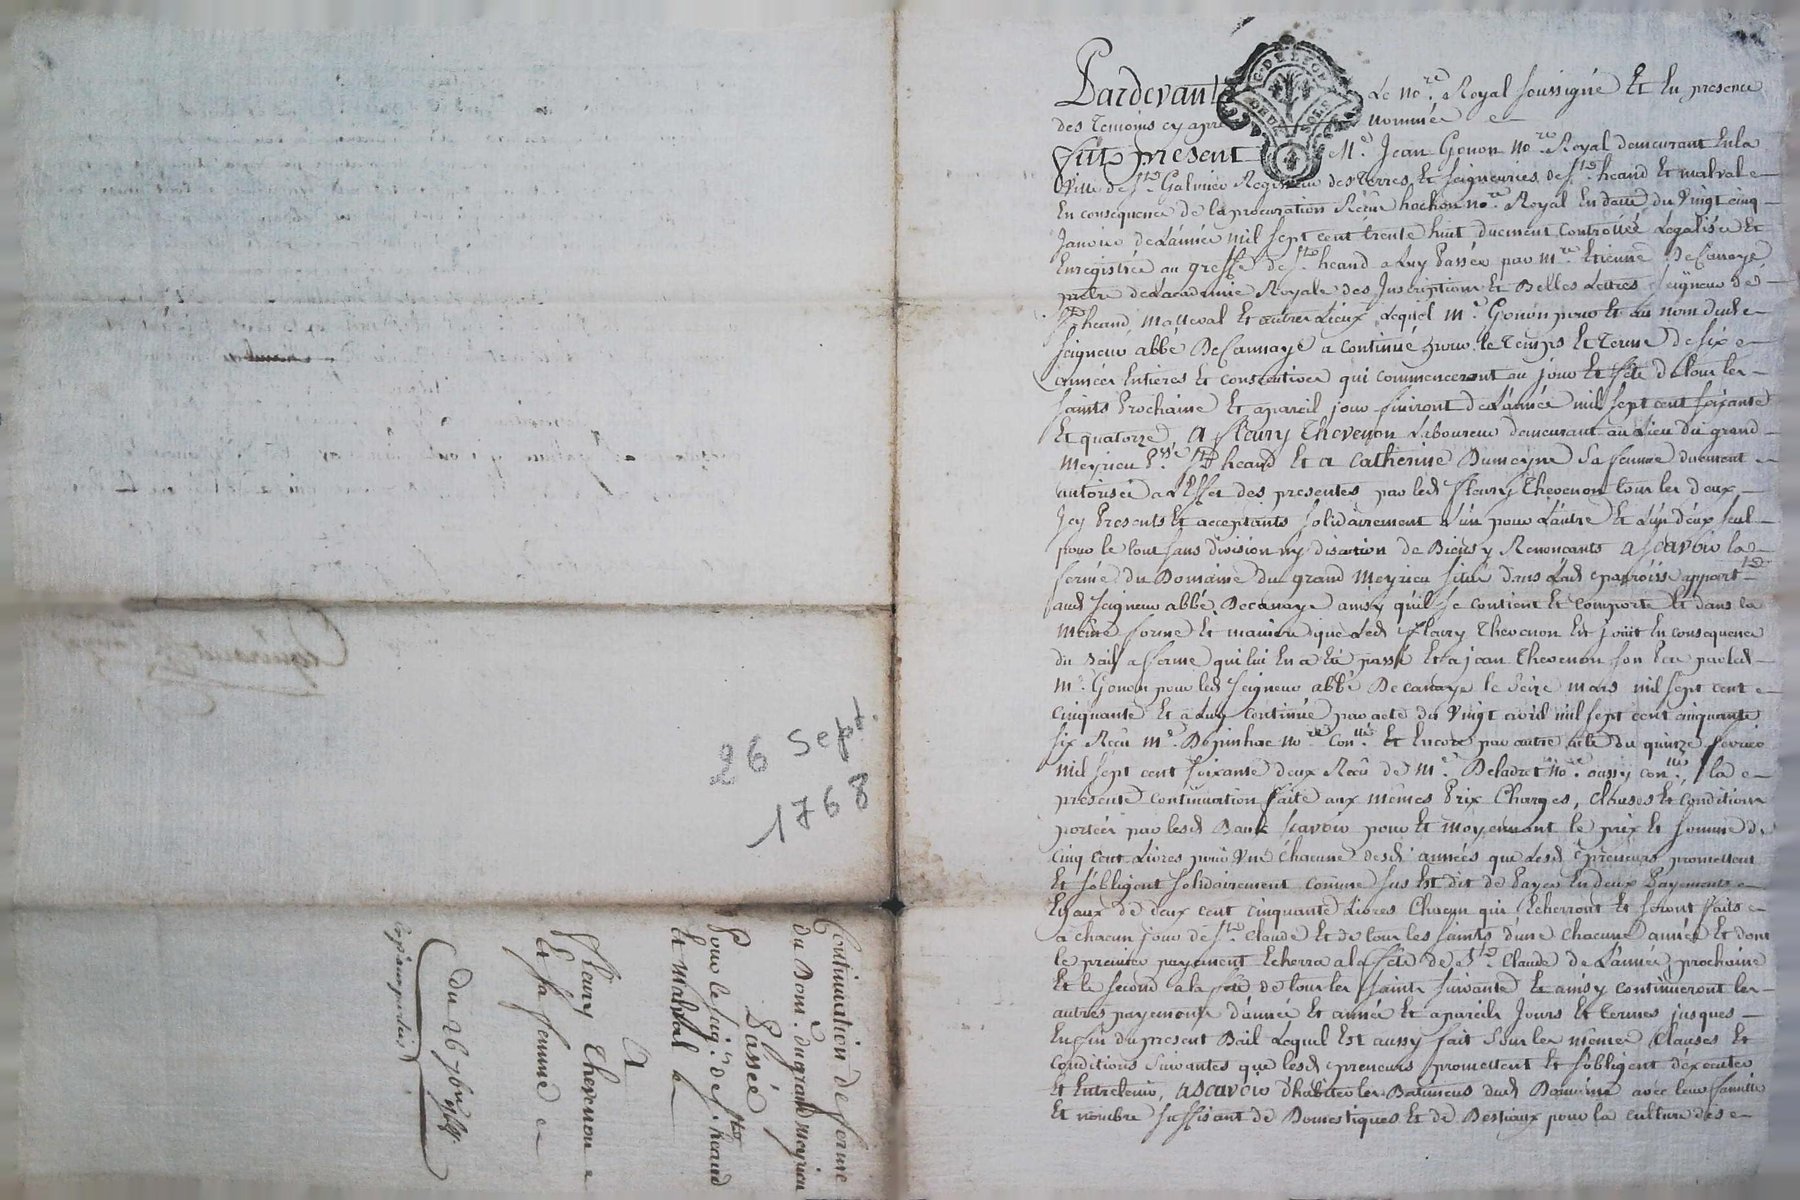 Pardevant Le no.re Royal soussigné Et En presence
des Temoins cy apres nommés
fut present M.e Jean Gonon no.re Royal demeurant En la
Ville de St Galmier Regisseur des Terres Et Seigneuries de St heand Et malval
En consequence de la procuration Reçue hochon no.re Royal En datte du Vingt cinq
Janvier de L'année mil sept cent trente huit duement Controllé Legalisée Et
Enregistrée au greffe de St heand a Luy Passée par m.re Etienne De Canaye
prêtre de L'academie Royale des Inscriptions Et Belles Lettres Seigneur de
St heand, Malleval Et autres Lieux Lequel M.e Gonon pour Et au nom dud
Seigneur abbé De Cannaye a continué pour le Temps Et Terme de six
années Entieres Et consecutives qui commenceront au jour Et fête de tous les
saints Prochaine Et a pareil jour finiront de L'année mil sept cent soixante
Et quatorze, A fleury Thevenon Laboureur demeurant au Lieu du grand
Meyrieu P.sse St heand Et a Catherine Dumoyne Sa femme duement
autorisée a L'Effet des presentes par led fleury Thevenon tous les deux
Jcy Presents Et acceptants solidairement L'un pour L'autre Et L'un d'eux seul
pour le tout sans division ny discution de Biens y Renonçants ascavoir la
ferme du Domaine du grand Meyrieu situé dans Lad parroisse appart.t
aud Seigneur abbé De canaye ainsy qu'il se contient Et comporte Et dans la
même forme Et maniere que Led fleury Thevenon En jouit En consequence
du Bail a ferme qui lui En a Eté passé Et a jean Thevenon son Pere par led
M.e Gonon pour led Seigneur abbé De canaye le seize mars mil sept cent
cinquante Et a Luy continué par acte du Vingt avril mil sept cent cinquante
six Reçu M.e Dépinhac no.re Et Encore par autre acte du quinze fevrier
mil sept cent soixante deux Reçû de M.e no.re aussy la
presente continuation faite aux mêmes Prix Charges, Clauses Et Conditions
portées par lesd Baux scavoir pour Et moyennant le prix Et somme de
cinq cent Livres pour Une Chacune desd années que Lesd preneurs promettent
Et s'obligent solidairement comme sus Est dit de Payer En deux Payements
Egaux de deux cent cinquante Livres Chacun qui Echerront Et seront faits
a chacun jour de St Claude Et de tous les saints d'une Chacune année Et dont
le premier payement Echerra a la fête de St Claude de L'année prochaine
Et le second a la fête de tous les saints suivante Et ainsy continueront les
autres payements d'année Et année Et a pareils Jours Et termes jusques
En fin du present Bail Lequel Est aussy fait sous les mêmes Clauses Et
Conditions suivantes que lesd preneurs promettent Et s'obligent d'executer
Et Entretenir, ascavoir d'habiter les Batiments dud Domaine avec leur famille
Et nombre suffisant de Domestiques Et de Bestiaux pour la culture des
26 sept.
1768
Continuation de ferme
du Dom.e du grand meyrieu
Passée
Pour le seig.r de St heand
Et malval
A
fleury Thevenon
Et sa femme
du 26 7bre 1768